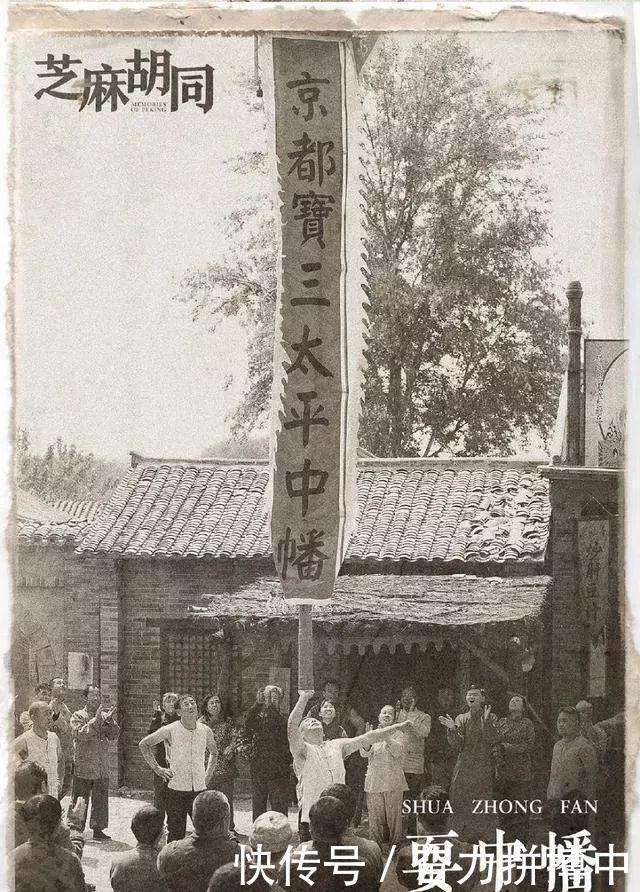 芝麻胡同
MEMORIES
OF PEKING
京都寶三太平中幡
SHUA ZHONG FAN
耍中幡
快传号 /